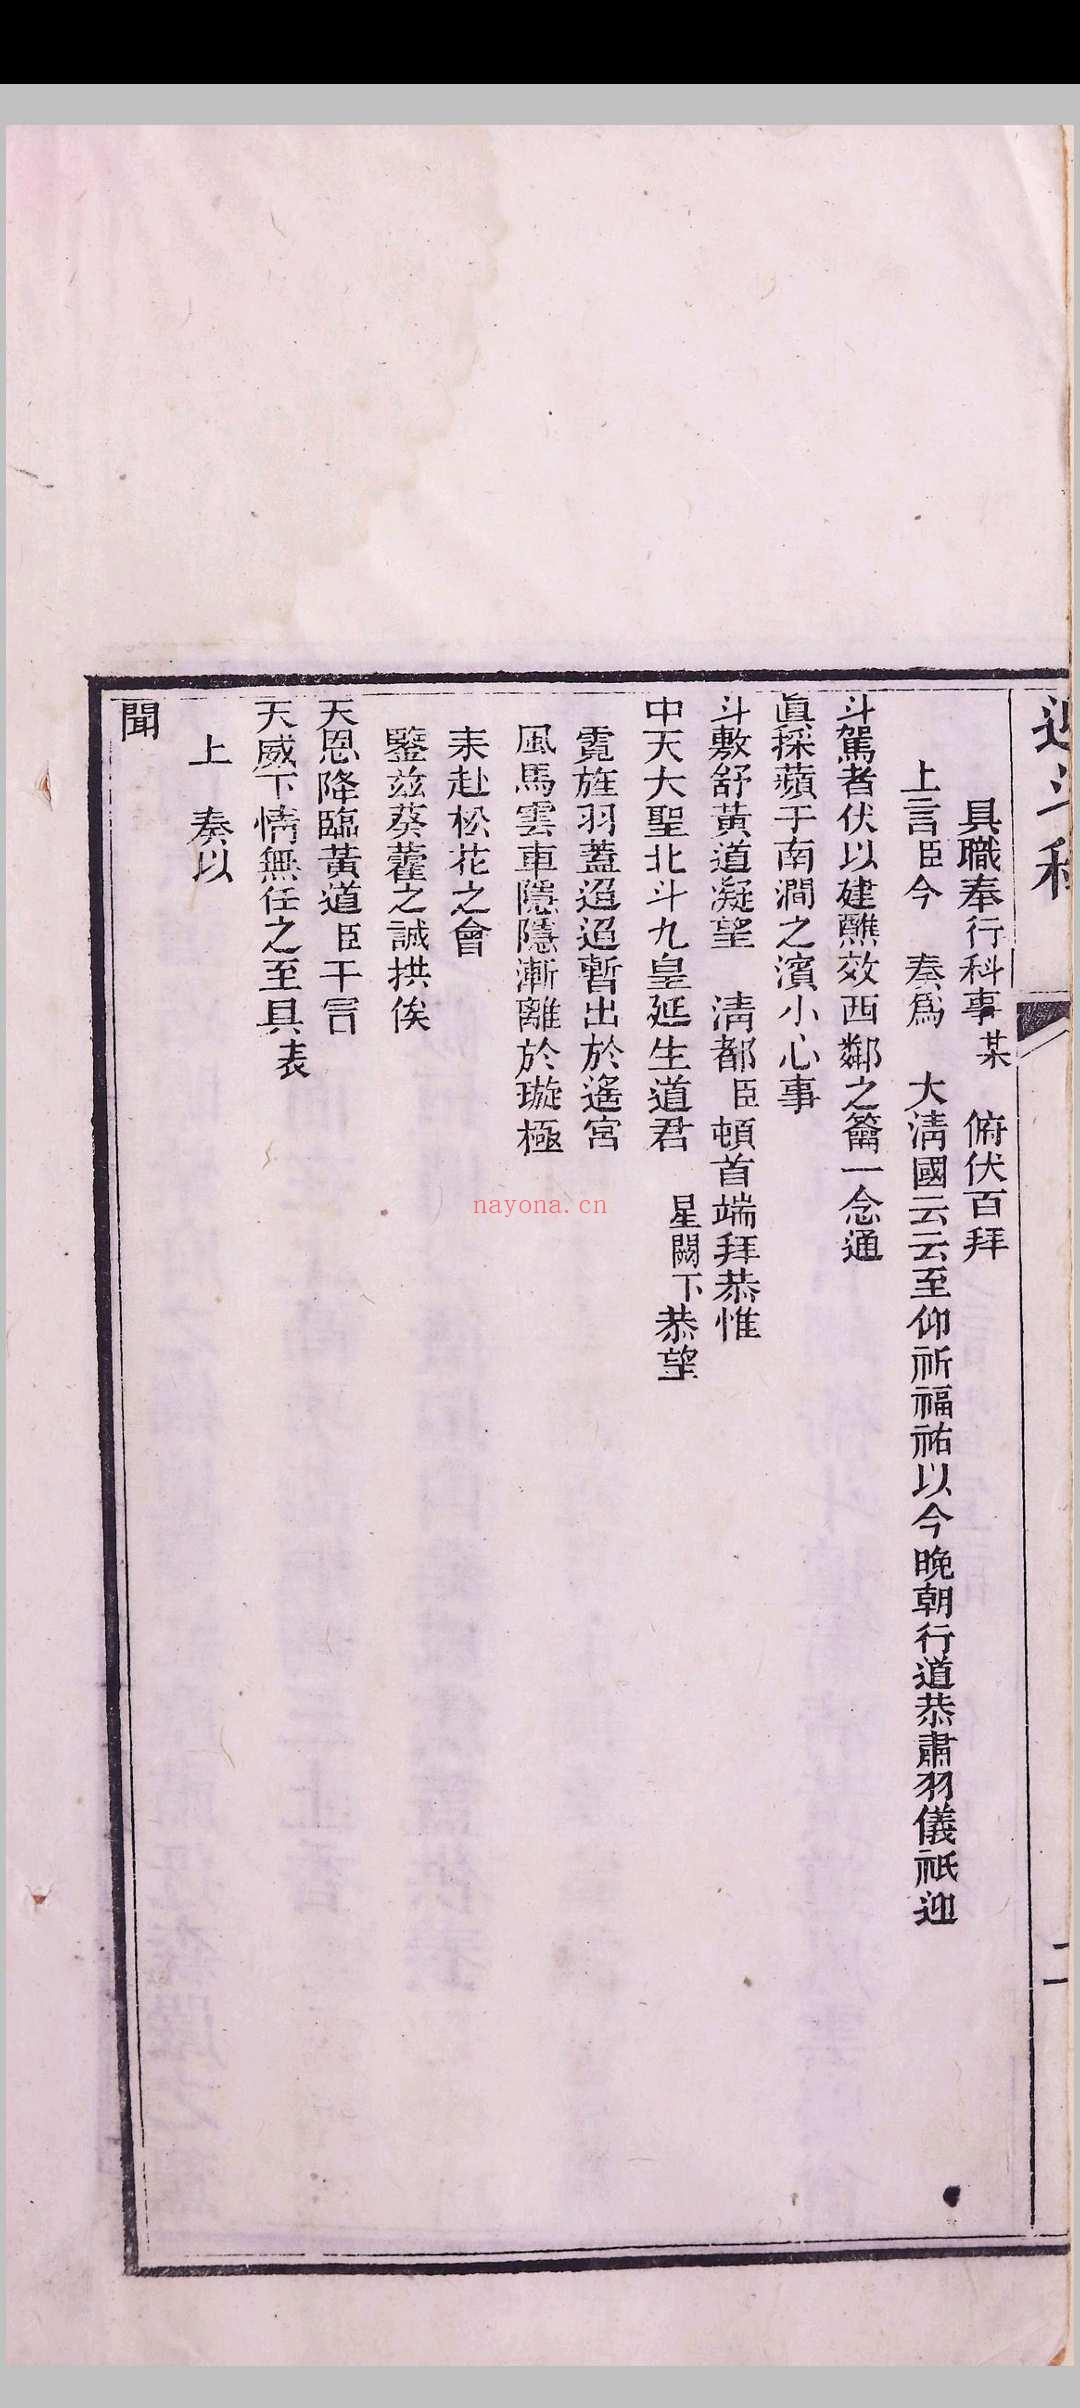 具職奉行科事某　俯伏百拜
上言臣今　奏爲　大清國云云至仰祈福祐以今晚朝行道恭肅羽儀祇迎
斗駕者伏以建醮效西鄰之籥一念通
眞採蘋于南澗之濱小心事
斗敷舒黃道凝望　淸都臣頓首端拜恭惟
中天大聖北斗九皇延生道君　星闕下恭望
霓旌羽蓋迢迢暫出於遙宮
風馬雲車隱隱漸離於璇極
來赴松花之會
鑒茲葵藿之誠拱俟
天恩降臨黃道臣干冒
天威下情無任之至具表
上　奏以
聞
nayona.cn